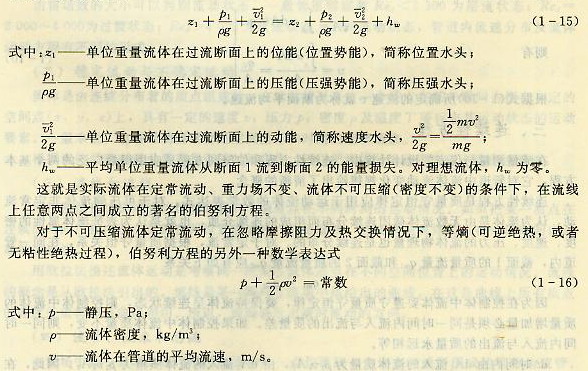 z₁ + p₁/ρg + v₁²/2g = z₂ + p₂/ρg + v₂²/2g + h_w (1-15)
式中:z₁——单位重量流体在过流断面上的位能(位置势能),简称位置水头;
p₁/ρg——单位重量流体在过流断面上的压能(压强势能),简称压强水头;
v₁²/2g——单位重量流体在过流断面上的动能,简称速度水头,v²/2g = ½mv²/mg;
h_w——平均单位重量流体从断面 1 流到断面 2 的能量损失。对理想流体,h_w 为零。
这就是实际流体在定常流动、重力场不变、流体不可压缩(密度不变)的条件下,在流线
上任意两点之间成立的著名的伯努利方程。
对于不可压缩流体定常流动,在忽略摩擦阻力及热交换情况下,等熵(可逆绝热,或者
无粘性绝热过程),伯努利方程的另外一种数学表达式
p + ½ρv² = 常数 (1-16)
式中:p——静压,Pa;
ρ——流体密度,kg/m³;
v——流体在管道的平均流速,m/s。